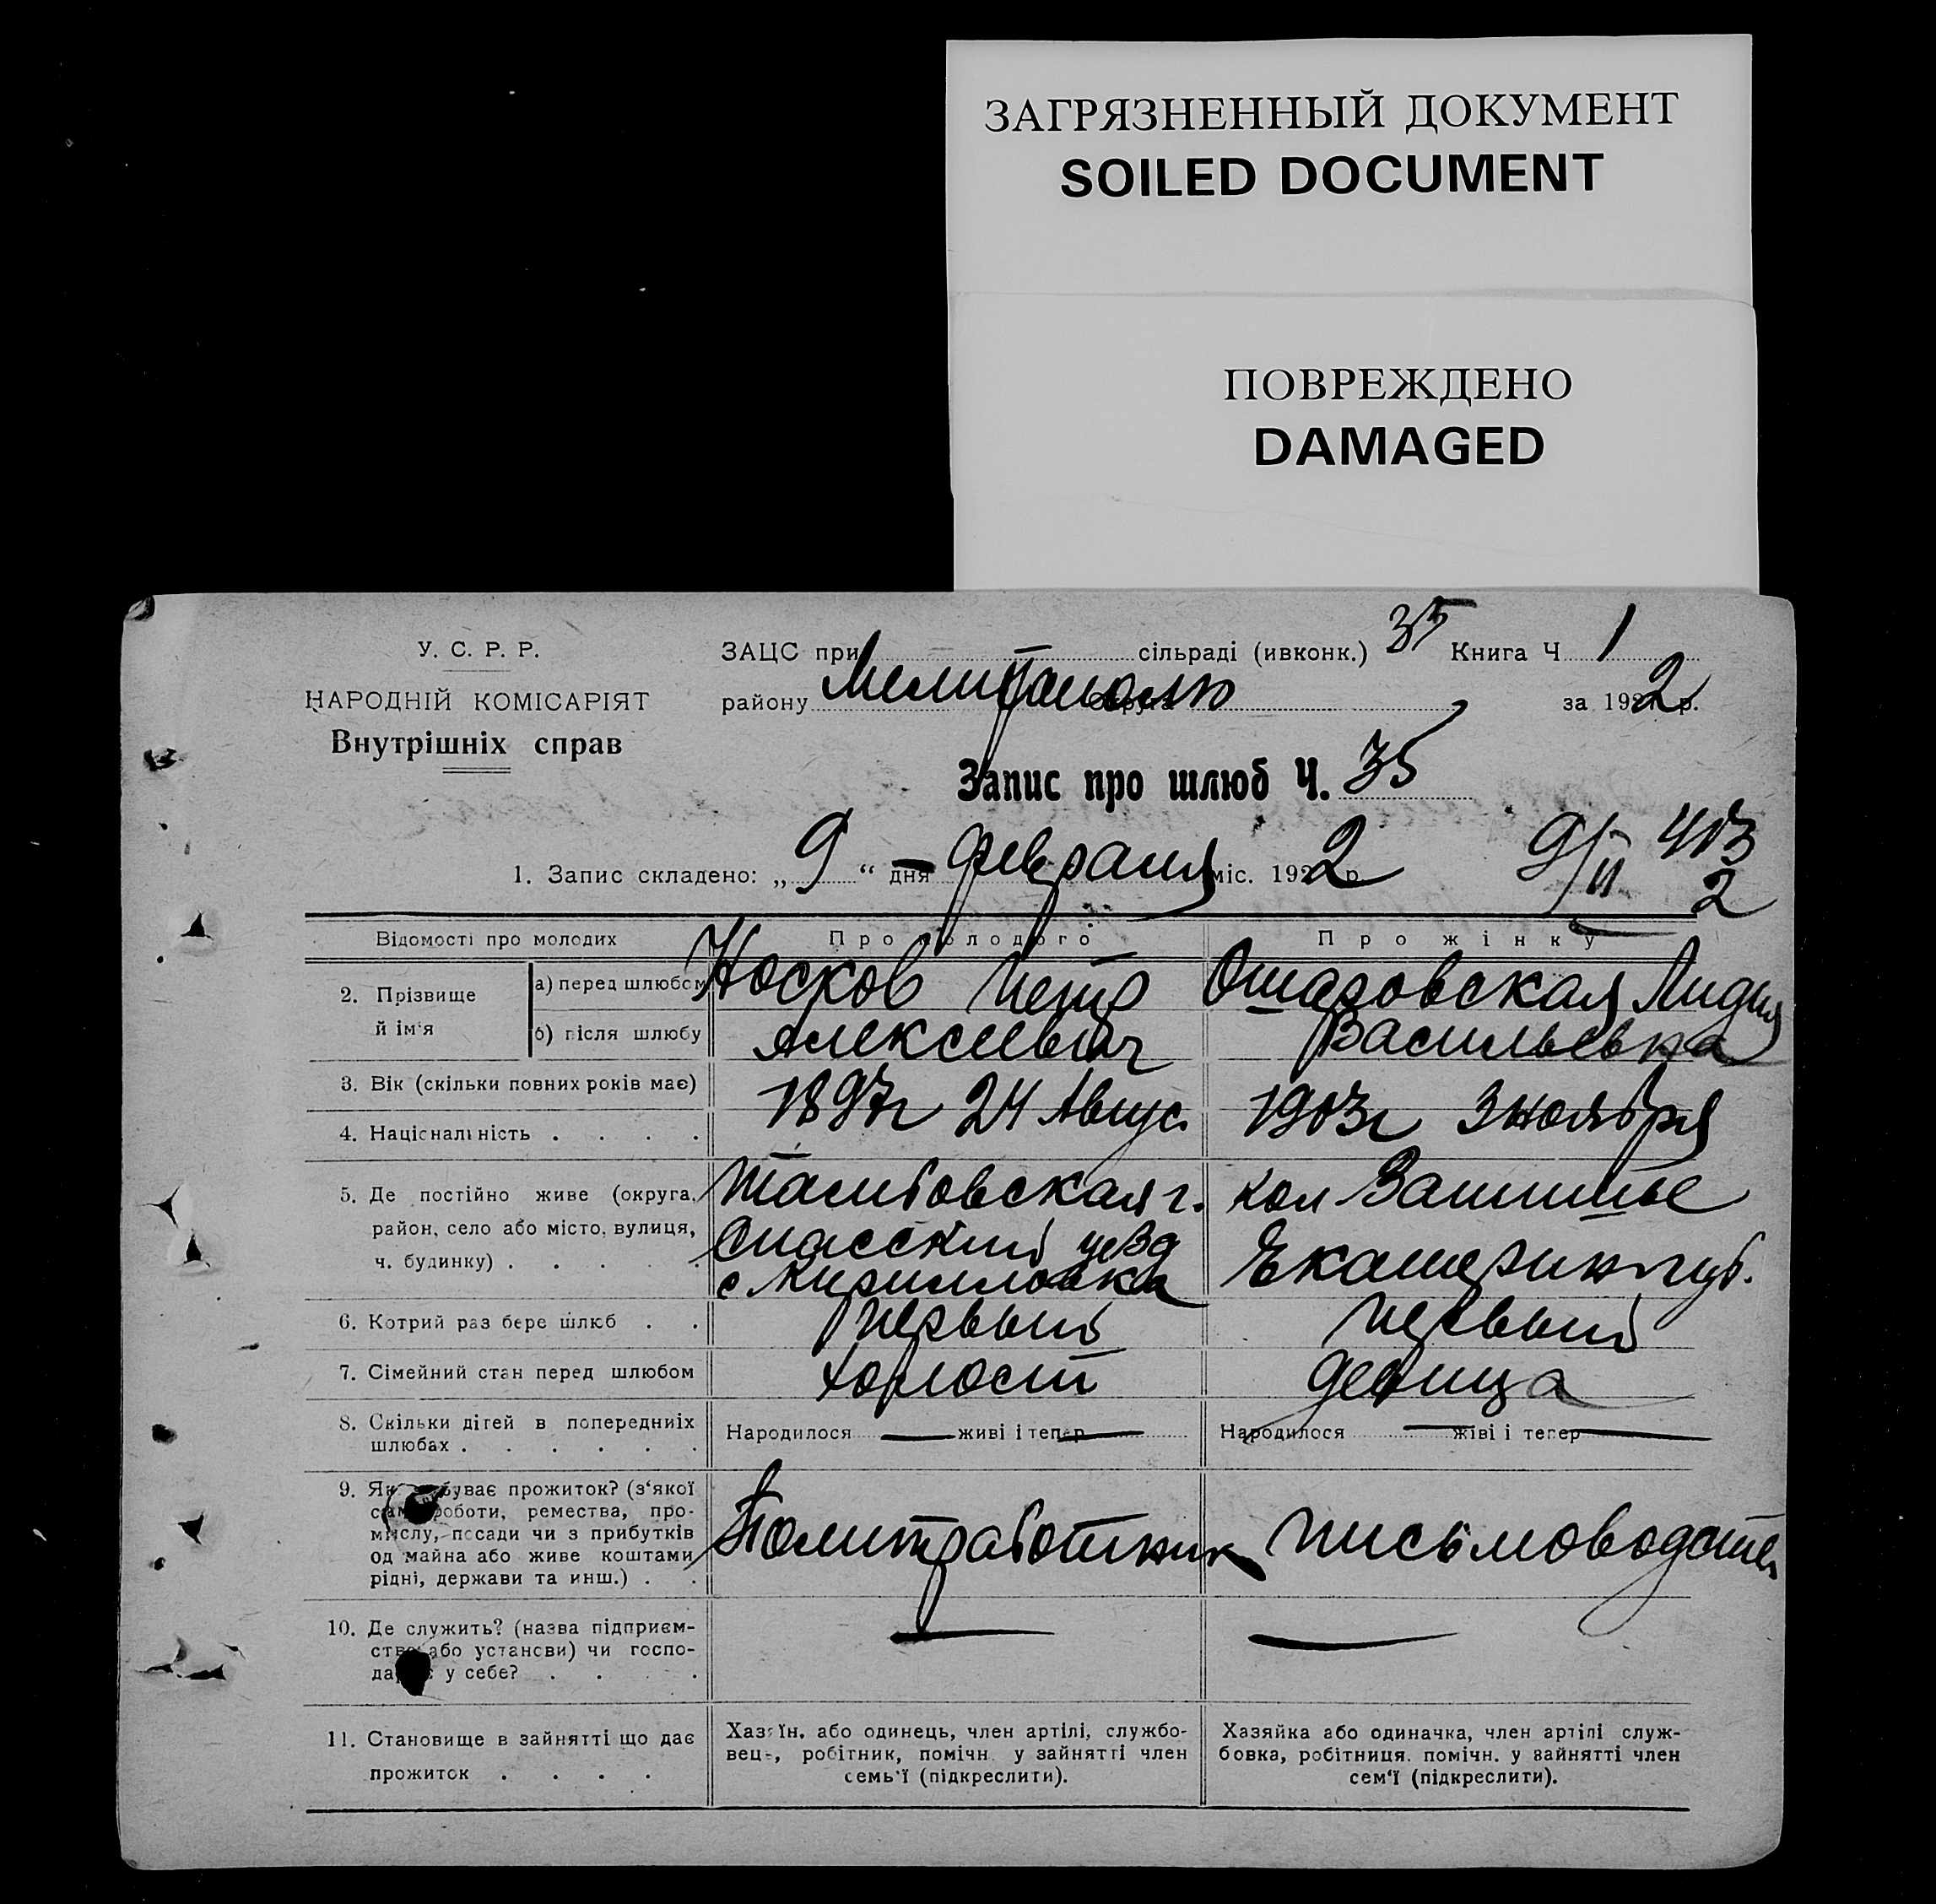 ЗАГРЯЗНЕННЫЙ ДОКУМЕНТ
SOILED DOCUMENT
ПОВРЕЖДЕНО
DAMAGED
У. С. Р. Р.
НАРОДНІЙ КОМІСАРІЯТ
Внутрішніх справ
ЗАЦС при сільраді (ивконк.) 35 Книга Ч 1
району Мелитополю за 1922 р.
Запис про шлюб Ч. 35
1. Запис складено: „ 9 “ дня февраля міс. 1922 р.
9/II 2
Відомості про молодих
Про молодого
Про жінку
2. Прізвище й ім'я
а) перед шлюбом
б) після шлюбу
Носков Петр
Алексеевич
Лидия
Васильевна
3. Вік (скільки повних років має)
4. Національність . . . .
1897г 24 Авгус.
1903г 3 ноября
5. Де постійно живе (округа,
район, село або місто, вулиця,
ч. будинку) . . . . .
Тамбовская г.
Спасский уезд
с Кирилловка
кол
Екатерин губ.
6. Котрий раз бере шлюб . .
Первый
первый
7. Сімейний стан перед шлюбом
холост
девица
8. Скільки дітей в попередніх
шлюбах . . . . . .
Народилося — живі і тепер —
Народилося — живі і тепер —
9. Як добуває прожиток? (з'якої
саме роботи, ремества, про-
мислу, посади чи з прибутків
од майна або живе коштами
рідні, держави та инш.) . .
Политработник
письмоводител
10. Де служить? (назва підприєм-
ства або установи) чи госпо-
дарює у себе? . . . .
—
—
11. Становище в зайнятті що дає
прожиток . . . .
Хазяїн, або одинець, член артілі, службо-
вець, робітник, помічн. у зайнятті член
семь'ї (підкреслити).
Хазяйка або одиначка, член артілі служ-
бовка, робітниця. помічн. у зайнятті член
сем'ї (підкреслити).